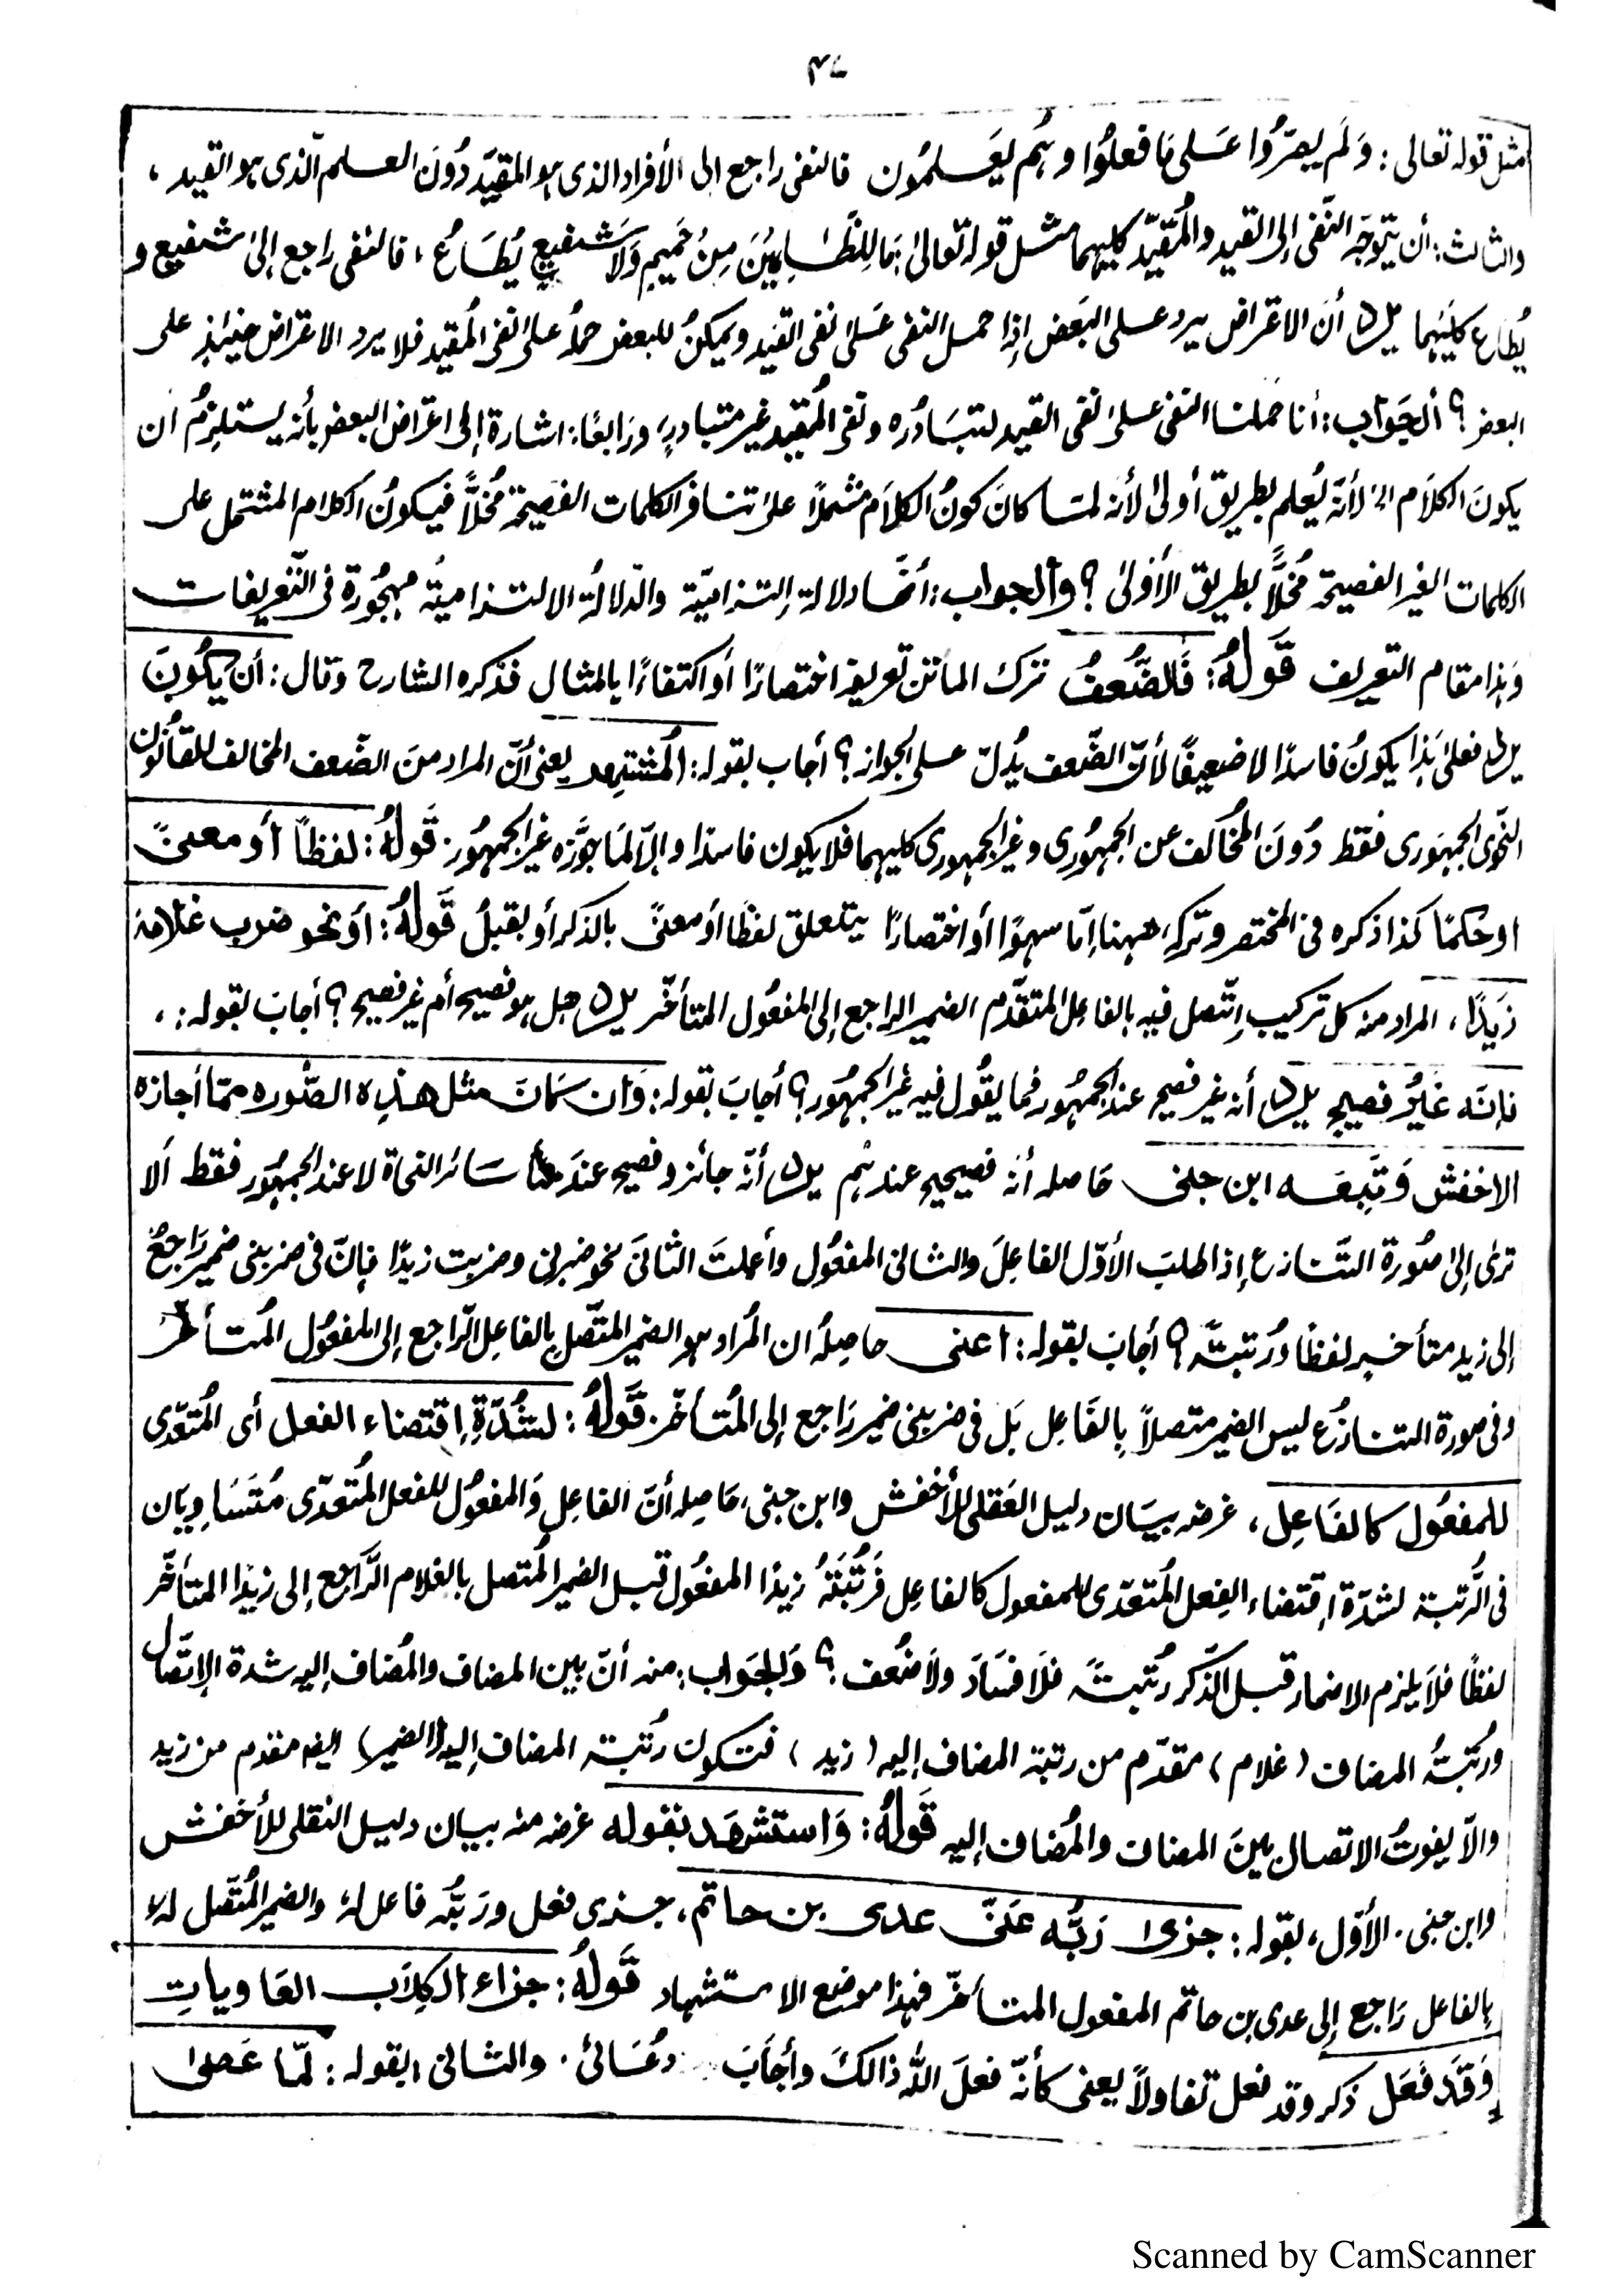 ٤٧
مثل قوله تعالى: وَلَم يصرُّوا عَلى مَا فعلُوا وهُم يَعلمُون فالنفى راجع الى الأفراد الذى هو المقيَّد دُونَ العلم الّذى هو القيد،
والثالث: أن يتوجّه النّفى إلى القيد والمُقيّد كليهما مثل قوله تعالىٰ: مَا لِلظّٰلِمِيْنَ مِنْ حَمِيمٍ وَلَا شَفيعٍ يُطَاعُ، فالنفى راجع إلىٰ شفيع و
يُطاع كلَيهما يرد أنّ الاعراض يرد على البَعض إذا حمل النفى عَلىٰ نفى القَيد ويمكنُ للبعض حملُه علىٰ نفى المُقيد فلا يرد الاعراض حينئذٍ على
البعض؟ ألجَواب: أنا حَملنا النفى علىٰ نفى القيد لتبَادُره ونفى المُقيد غير متبادرٍ، ورَابعًا: اشارة إلى اعراض البعض بأنه يستلزمُ ان
يكونَ الكلَام الخ لأنّه يُعلم بطريق أولىٰ لأنه لمّا كانَ كونُ الكلَام مشملاً علىٰ تنافر الكلمات الفصيحة مُخلاًّ فيكونُ الكلام المشتمل على
الكلمات الغير الفصيحة مُخلاًّ بطريق الأَوْلىٰ؟ وألجواب: أنّها دلالة إلتزاميّة والدّلالةُ الالتزاميةُ مهجُورة فى التّعريفات
وَهذا مقام التعريف قَولُهُ: فَالضُّعفُ ترك الماتن تعريفه اختصارًا أو اكتفاءًا بالمثال فذكره الشارح وقال: أن يَّكُونَ
يرد فعلىٰ هَذا يكونُ فاسدًا لا ضعيفًا لأنّ الضّعف يُدلّ على الجواز؟ أجاب بقوله: المُشتهِر يعنى أنّ المراد منَ الضّعف المخالف للقَانُون
النّحوى الجمهَورى فقط دُونَ المُخالف عن الجمهُورى وغير الجمهورى كليهما فلا يكون فاسدًا وإلاّ لمَا جوَّزه غير الجمهُور. قَولُهُ: لفظًا أو معنىً
او حُكمًا كذا ذكره فى المختصر وتركه ههنا إمّا سهوًا أو اختصارًا يتعلق لفظًا أو معنىً بالذكر أو بقبلُ قَولُهُ: أوَ نحو ضرب غلامهٗ
زَيدًا، المراد منه كل تركيب إتّصل فيه بالفاعل المتقدّم الضمير الراجع إلى المفعُول المتأخّر يرد هل هو فصيح أم غير فصيح؟ أجابَ بقوله:،
فإنّه غَيرُ فصيحٍ يرد أنه غير فصيح عند الجمهُور فما يقُول فيه غير الجمهَور؟ أجابَ بقوله: وَان كَانَ مثل هٰذِه الصُّوره ممّا أجازه
الاخفش وَتَبِعَه ابن جنى حَاصله أنّه فصيحيح عندهُم يرد أنّه جائز وفصيح عندَ سَائر النحاة لا عند الجمهُور فقط ألا
ترىٰ إلىٰ صُورة التَّنازع إذا طلب الأوّل الفاعِلَ والثانى المفعُول وأعملتَ الثانىَ نحو ضربنى وضربت زيدًا فإنّ فى ضربنى ضمير رَاجعٌ
إلى زيدٍ متأخر لفظًا ورُتبتًہ؟ أجابَ بقوله: اعنى حاصِلهُ ان المُراد هو الضمير المتّصل بالفاعل الرّاجع إلى المفعُول المُتأخّر
وفى صورة التنازُع ليس الضمير متصلاً بِالفَاعِل بَل فى ضربنى ضمير رَاجع إلى المُتأخّر. قَولُهُ: لشُدّةِ إقتضاء الفعل أى المُتعدّى
للمفعُول كالفَاعِل، غرضه بيَان دليل العَقلى للأخفش وابن جنى، حَاصِله أنّ الفاعِل وَالمفعُول للفعل المُتعدّى مُتَسَاوِيَان
فى الرُّتبة لشدّة إقتضاء الفِعل المُتعدّى للمفعول كالفاعِل فَرُتبَتُهُ زيدًا المفعُول قبل الضمير المُتصل بالغلام الرَّاجع إلى زيدًا المتأخّر
لفظًا فلَا يلزم الاضمار قبل الذّكر رُتبتًہ فلَا فسَادَ ولَا ضُعف؟ وَالجَواب: منه أنّ بين المضاف والمُضاف إليه شدة الإتّصال
ورُتبتُہ المضاف (غلام) مقدّم من رتبة المضاف إليه (زيد) فتكون رُتبتہ المضاف إليه (الضمير) ايضا مقدم من زيد
والاّ يفوتُ الاتصال بينَ المضاف والمُضاف إليه قَولُهُ: وَاستَشهَد بقوله غرضه منه بيان دليل النقلى للأخفش
وابن جنى. الأوّل، بقوله: جزىٰ رَبُّه عَنّى عدى بن حاتم، جزى فعل ورَبُّه فاعل لهٗ والضمير المُتّصل لهٗ
بالفاعل رَاجع إلى عدى بن حاتم المفعول المتأخّر فهذا موضع الاستشهاد قَولُهُ: جزاء الكِلَاب العَاوياتِ
وَقَد فَعَل ذكر وقد فعل تفاولاً يعنى كأنّه فعلَ اللّٰه ذالكَ وأجَابَ دُعَائى. والثانى بقوله: لمّا عَصىٰ
Scanned by CamScanner